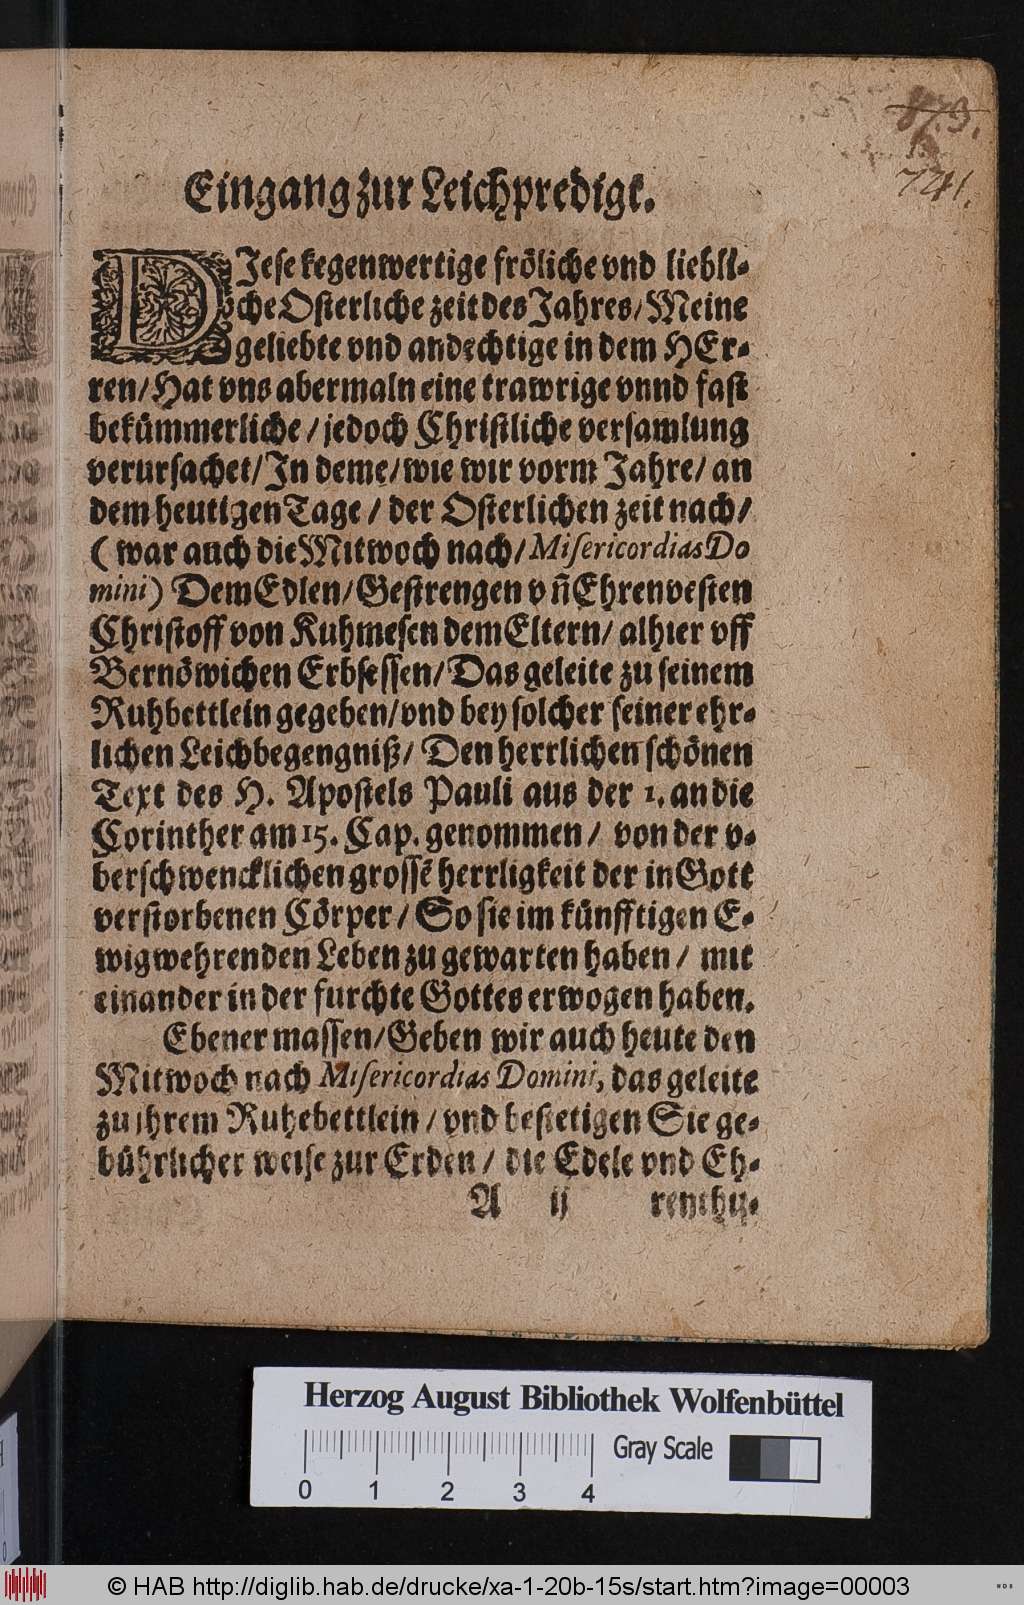 873.
741.
Eingang zur Leichpredigt.
DIese kegenwertige fröliche vnd liebli-
che Osterliche zeit des Jahres/ Meine
geliebte vnd andechtige in dem HEr-
ren/ Hat vns abermaln eine trawrige vnnd fast
bekümmerliche/ jedoch Christliche versamlung
verursachet/ In deme/ wie wir vorm Jahre/ an
dem heutigen Tage/ der Osterlichen zeit nach/
(war auch die Mitwoch nach/ Misericordias Do
mini) Dem Edlen/ Gestrengen vñ Ehrenvesten
Christoff von Kuhmesen dem Eltern/ alhier vff
Bernöwichen Erbsessen/ Das geleite zu seinem
Ruhbettlein gegeben/ vnd bey solcher seiner ehr-
lichen Leichbegengniß/ Den herrlichen schönen
Text des H. Apostels Pauli aus der 1. an die
Corinther am 15. Cap. genommen/ von der v-
berschwencklichen grossē herrligkeit der in Gott
verstorbenen Cörper/ So sie im künfftigen E-
wigwehrenden Leben zu gewarten haben/ mit
einander in der furchte Gottes erwogen haben.
Ebener massen/ Geben wir auch heute den
Mitwoch nach Misericordias Domini, das geleite
zu jhrem Ruhebettlein/ vnd bestetigen Sie ge-
bührlicher weise zur Erden/ die Edele vnd Eh-
A ij renthu-
Herzog August Bibliothek Wolfenbüttel
Gray Scale
0 1 2 3 4
© HAB http://diglib.hab.de/drucke/xa-1-20b-15s/start.htm?image=00003